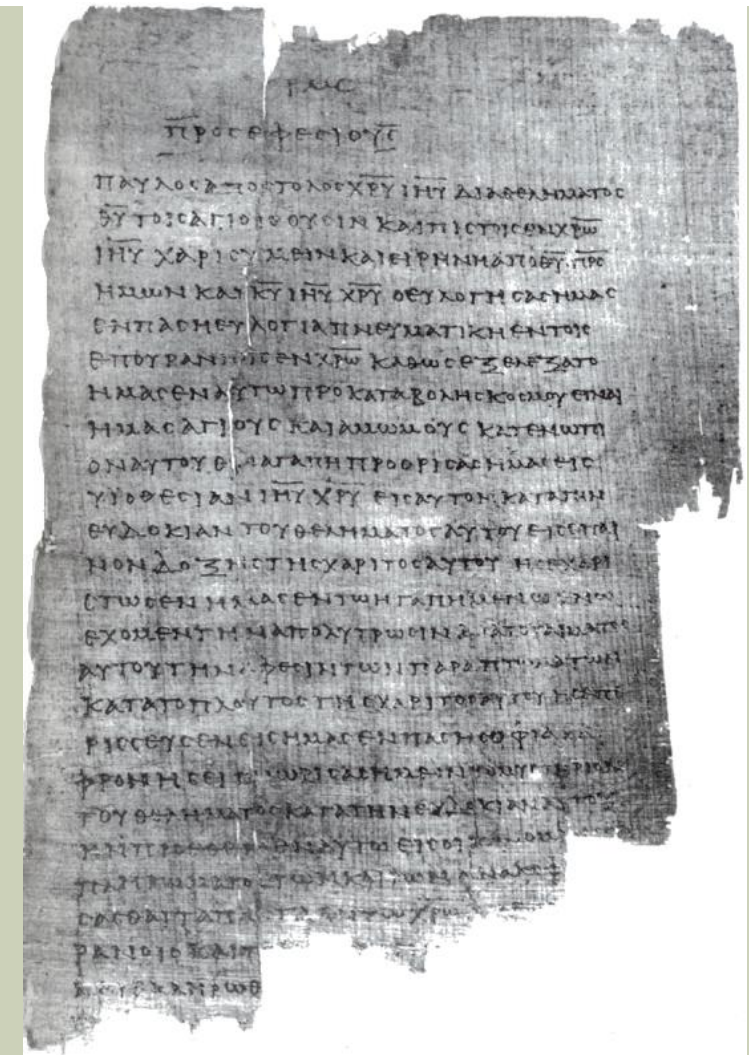 ΡΜϚ
ΠΡΟϹΕΦΕϹΙΟΥϹ
ΠΑΥΛΟϹΑΠΟϹΤΟΛΟϹΧ̅Ρ̅Υ̅Ι̅Η̅Υ̅ΔΙΑΘΕΛΗΜΑΤΟϹ
Θ̅Υ̅ΤΟΙϹΑΓΙΟΙϹΟΥϹΙΝΚΑΙΠΙϹΤΟΙϹΕΝΧ̅Ρ̅Ω̅
Ι̅Η̅Υ̅ΧΑΡΙϹΥΜΕΙΝΚΑΙΕΙΡΗΝΗΑΠΟΘ̅Υ̅Π̅Ρ̅Ο̅
ΗΜΩΝΚΑΙΚ̅Υ̅Ι̅Η̅Υ̅Χ̅Ρ̅Υ̅ΟΕΥΛΟΓΗϹΑϹΗΜΑϹ
ΕΝΠΑϹΗΕΥΛΟΓΙΑΠΝΕΥΜΑΤΙΚΗΕΝΤΟΙϹ
ΕΠΟΥΡΑΝΙΟΙϹΕΝΧ̅Ρ̅Ω̅ΚΑΘΩϹΕΞΕΛΕΞΑΤΟ
ΗΜΑϹΕΝΑΥΤΩΠΡΟΚΑΤΑΒΟΛΗϹΚΟϹΜΟΥΕΙΝΑΙ
ΗΜΑϹΑΓΙΟΥϹΚΑΙΑΜΩΜΟΥϹΚΑΤΕΝΩΠΙ
ΟΝΑΥΤΟΥΕΝΑΓΑΠΗΠΡΟΟΡΙϹΑϹΗΜΑϹΕΙϹ
ΥΙΟΘΕϹΙΑΝΔΙΙ̅Η̅Υ̅Χ̅Ρ̅Υ̅ΕΙϹΑΥΤΟΝΚΑΤΑΤΗΝ
ΕΥΔΟΚΙΑΝΤΟΥΘΕΛΗΜΑΤΟϹΑΥΤΟΥΕΙϹΕΠΑΙ
ΝΟΝΔΟΞΗϹΤΗϹΧΑΡΙΤΟϹΑΥΤΟΥΗϹΕΧΑΡΙ
ϹΤΩϹΕΝΗΜΑϹΕΝΤΩΗΓΑΠΗΜΕΝΩΕΝΩ
ΕΧΟΜΕΝΤΗΝΑΠΟΛΥΤΡΩϹΙΝΔΙΑΤΟΥΑΙΜΑΤΟϹ
ΑΥΤΟΥΤΗΝΑΦΕϹΙΝΤΩΝΠΑΡΑΠΤΩΜΑΤΩΝ
ΚΑΤΑΤΟΠΛΟΥΤΟϹΤΗϹΧΑΡΙΤΟϹΑΥΤΟΥΗϹΕΠΕ
ΡΙϹϹΕΥϹΕΝΕΙϹΗΜΑϹΕΝΠΑϹΗϹΟΦΙΑΚΑΙ
ΦΡΟΝΗϹΕΙΓΝΩΡΙϹΑϹΗΜΕΙΝΤΟΜΥϹΤΗΡΙΟΝ
ΤΟΥΘΕΛΗΜΑΤΟϹΚΑΤΑΤΗΝΕΥΔΟΚΙΑΝΑΥΤΟΥ
ΗΝΠΡΟΕΘΕΤΟΕΝΑΥΤΩΕΙϹΟΙΚΟΝΟΜ
ΠΛΗΡΩΜΑΤΟϹΤΩΝΚΑΙΡΩΝΑΝΑΚΕΦ
ϹΑϹΘΑΙΤΑΠΑΝΤΑΕΝΤΩΧ̅Ρ̅Ω̅
ΡΑΝΟΙϹΚΑΙΤ
ΕΚΛΗΡΩΘ